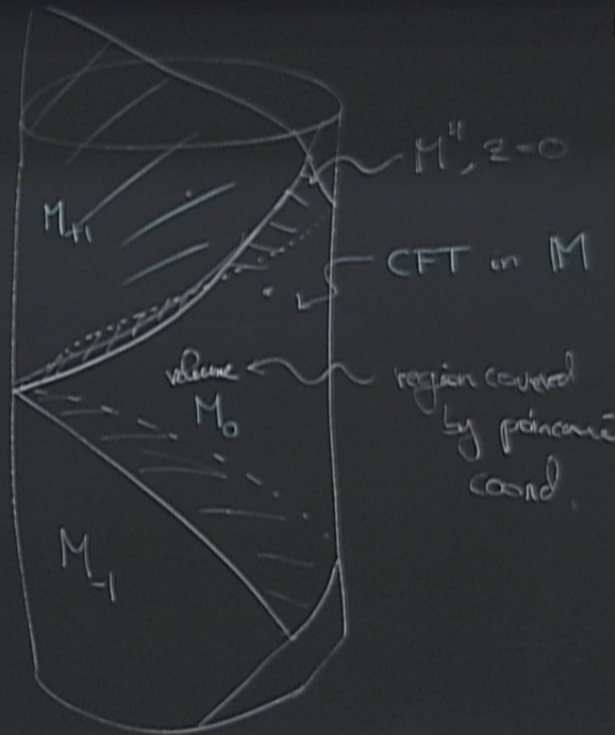 M", z=0
M+1
CFT on M
volume
M0
region covered
by poincaré
coord.
M-1